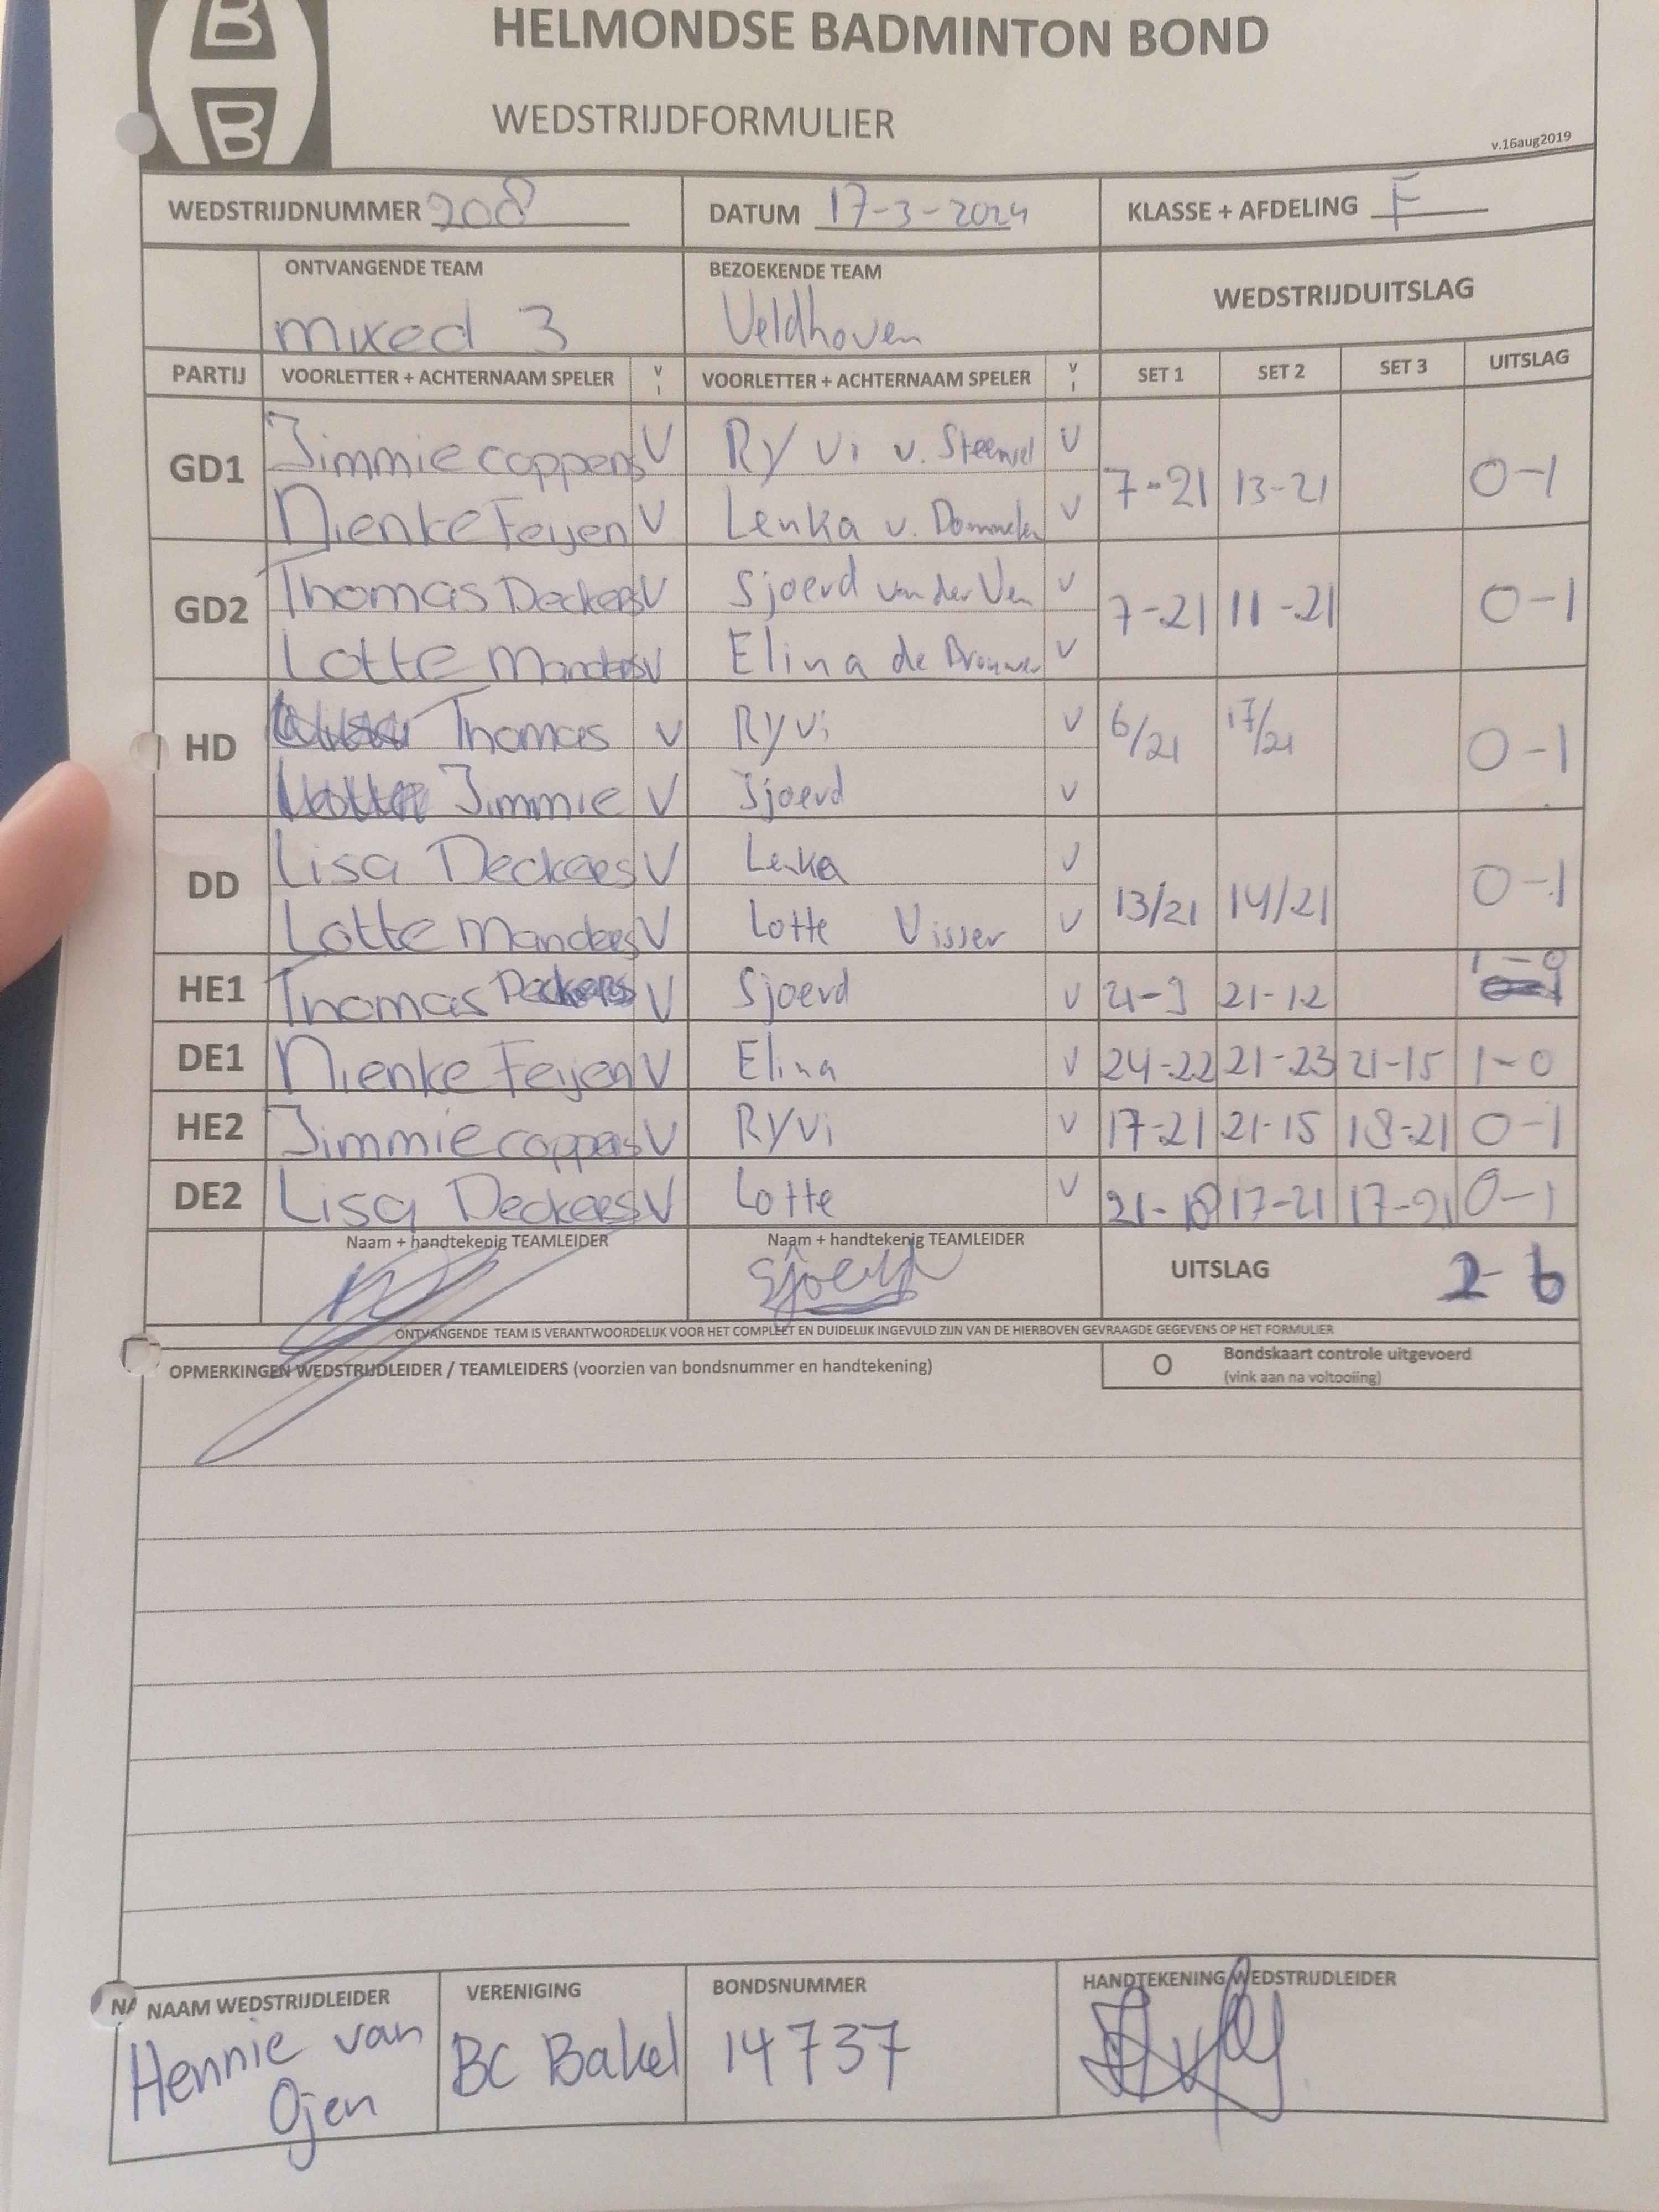 B
B
HELMONDSE BADMINTON BOND
WEDSTRIJDFORMULIER
v.16aug2019
WEDSTRIJDNUMMER 208 DATUM 17-3-2024 KLASSE + AFDELING F
ONTVANGENDE TEAM BEZOEKENDE TEAM WEDSTRIJDUITSLAG
mixed 3 Veldhoven
PARTIJ VOORLETTER + ACHTERNAAM SPELER V I VOORLETTER + ACHTERNAAM SPELER V I SET 1 SET 2 SET 3 UITSLAG
GD1 Jimmie coppens V Ryvi v. V 7-21 13-21 0-1
Nienke Feijen V Lenka v. V
GD2 Thomas Deckers V Sjoerd van der Ven V 7-21 11-21 0-1
Lotte Manders V Elina de Brouwer V
HD Thomas V Ryvi V 6/21 17/21 0-1
Jimmie V Sjoerd V
DD Lisa Deckers V Lenka V 13/21 14/21 0-1
Lotte Manders V Lotte Visser V
HE1 Thomas Deckers V Sjoerd V 21-12 1-0
DE1 Nienke Feijen V Elina V 24-22 21-23 21-15 1-0
HE2 Jimmie coppens V Ryvi V 17-21 21-15 18-21 0-1
DE2 Lisa Deckers V Lotte V 21-18 17-21 17-21 0-1
Naam + handtekenig TEAMLEIDER Naam + handtekenig TEAMLEIDER UITSLAG 2-6
Sjoerd
ONTVANGENDE TEAM IS VERANTWOORDELIJK VOOR HET COMPLEET EN DUIDELIJK INGEVULD ZIJN VAN DE HIERBOVEN GEVRAAGDE GEGEVENS OP HET FORMULIER
OPMERKINGEN WEDSTRIJDLEIDER / TEAMLEIDERS (voorzien van bondsnummer en handtekening) O Bondskaart controle uitgevoerd
(vink aan na voltooiing)
NA NAAM WEDSTRIJDLEIDER VERENIGING BONDSNUMMER HANDTEKENING WEDSTRIJDLEIDER
Hennie van Ojen BC Bakel 14737